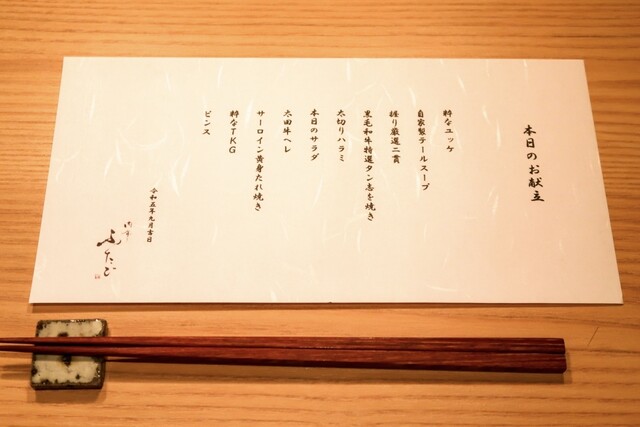 本日のお献立
粋なユッケ
自家製テールスープ
握り厳選二貫
黒毛和牛特選タン志を焼き
大切りハラミ
本日のサラダ
太田牛ヘレ
サーロイン黄身たれ焼き
粋なTKG
ビンス
令和五年九月吉日
ふたご